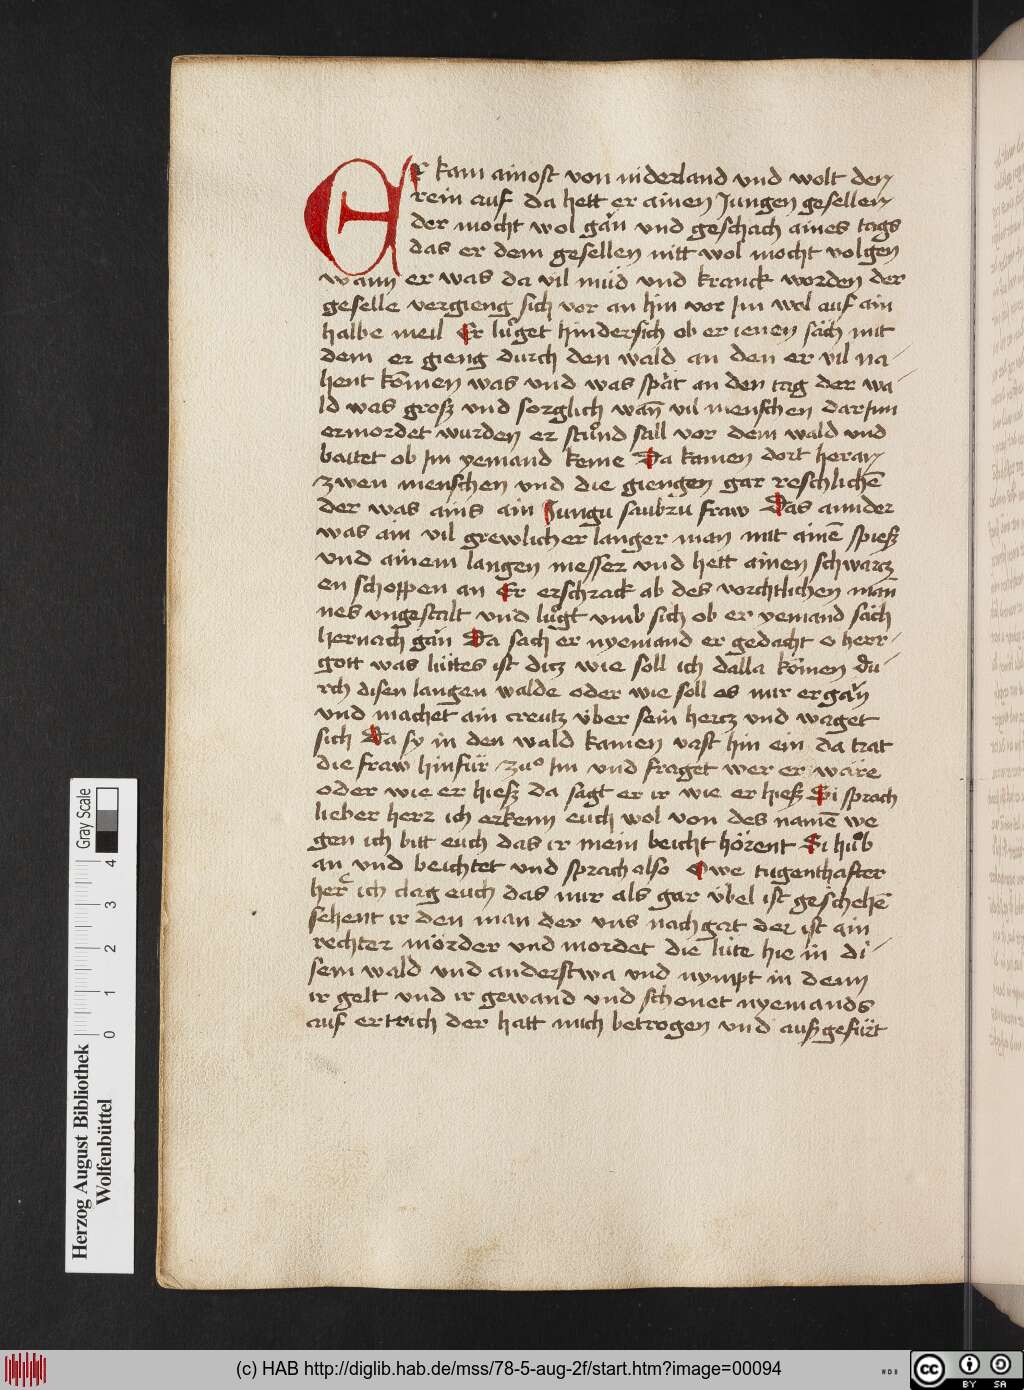 Er kam ainost von niderland vnd wolt den
rein auf da hett er ainen Jungen gesellen
der mocht wol gän vnd geschach aines tags
das er dem gesellen nitt wol mocht volgen
wann er was da vil müd vnd kranck worden der
geselle vergieng sich vor an hin vor Jm wol auf ain
halbe meil Er lůget hindersich ob er ienen säch mit
dem er gieng durch den wald an den er vil na-
hent kom̄en was vnd was spät an den tag der wa-
ld was grosz vnd sorglich wan̄ vil menschen darJnn
ermordet wurden er stůnd still vor dem wald vnd
baitet ob Jm yemand keme Da kamen dort heran
zwen menschen vnd die giengen gar reschlichē
der was ains ain Jungu saubru fraw Das annder
was ain vil grewlicher langer man mit ainē spiesz
vnd ainem langen messer vnd hett ainen schwarcz
en schoppen an Er erschrack ab des vorchtlichen man̄
nes vngestalt vnd lůgt vmb sich ob er yemand säch
hernach gän Da sach er nyemand er gedacht o herr-
gott was lüttes ist ditz wie soll ich dalla kom̄en du-
rch disen langen walde oder wie soll es mir ergän
vnd machet ain creutz über sein hercz vnd waget
sich Da sy in den wald kamen vast hin ein da trat
die fraw hinfür zuͦ Jm vnd fraget wer er wäre
oder wie er hiesz da sagt er ir wie er hiesz Si sprach
lieber herr ich erkenn euch wol von des namē we
gen ich bitt euch das ir mein beicht hörent Si hůb
an vnd beichtet vnd sprach also Owe tugenthafter
her̄ ich clag euch das mir als gar übel ist geschehē
sehent ir den man der vns nach gat der ist ain
rechter mörder vnd mordet die lüte hie in di-
sem wald vnd anderstwa vnd nympt in denn
ir gelt vnd ir gewand vnd schonet nyemands
auf ertrich der hatt mich betrogen vnd auszgefürt
Herzog August Bibliothek
Wolfenbüttel
0 1 2 3 4
Gray Scale
(c) HAB http://diglib.hab.de/mss/78-5-aug-2f/start.htm?image=00094
WDB
cc BY SA